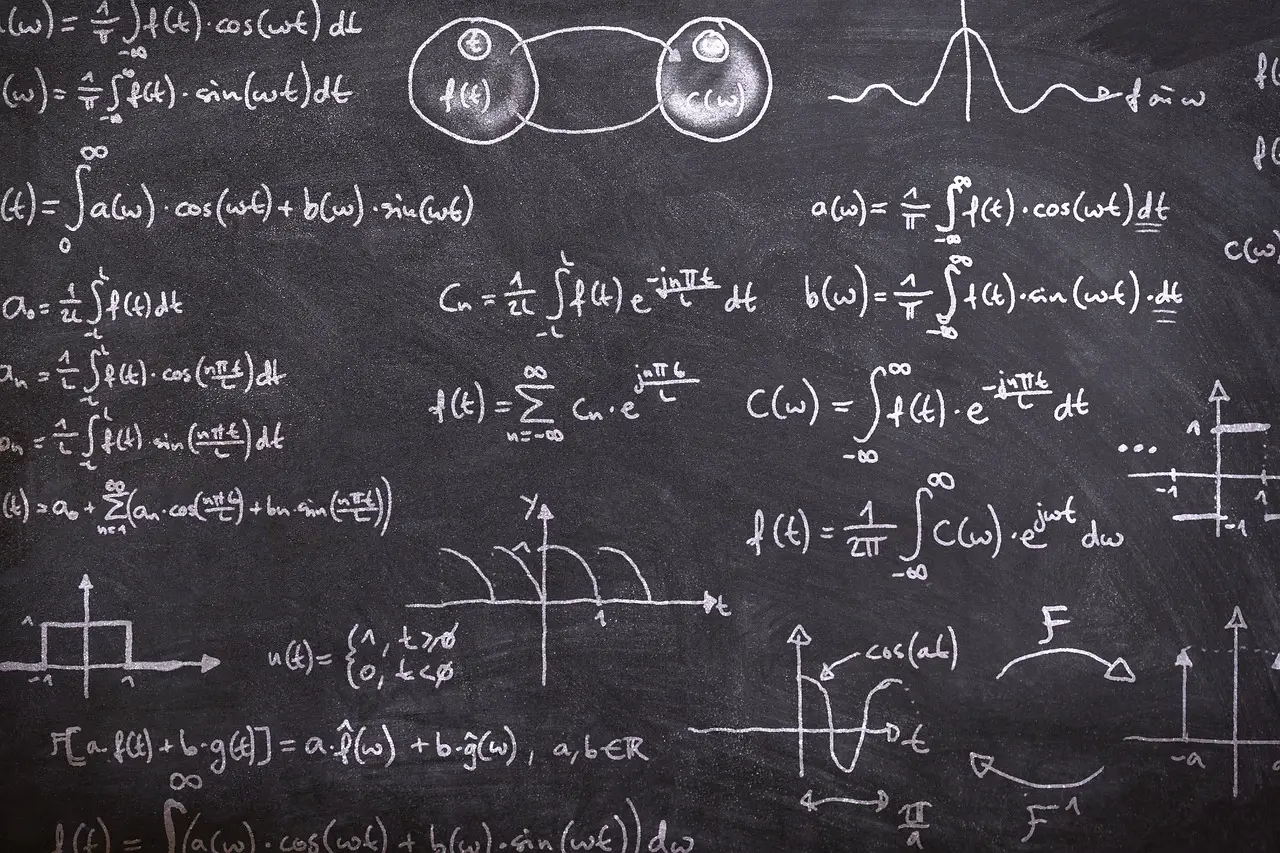 (ω) = 1/π ∫_{-∞} f(t)·cos(ωt) dt
(ω) = 1/π ∫_{-∞}^{∞} f(t)·sin(ωt)dt
t
f(t)
c(ω)
f ân ω
f(
f(
(t) = ∫_0^∞ a(ω)·cos(ωt) + b(ω)·sin(ωt)
a(ω) = 1/π ∫_{-∞}^{∞} f(t)·cos(ωt)dt
c(ω)
a₀ = 1/2L ∫_{-L}^{L} f(t)dt
Cn = 1/2L ∫_{-L}^{L} f(t) e^{-jnπt/L} dt
b(ω) = 1/π ∫_{-∞}^{∞} f(t)·sin(ωt)·dt
an = 1/L ∫_{-L}^{L} f(t)·cos(nπt/L)dt
f(t) = Σ_{n=-∞}^{∞} Cn·e^{jnπt/L}
C(ω) = ∫_{-∞}^{∞} f(t)·e^{-jnπt/L} dt
bn = 1/L ∫_{-L}^{L} f(t)·sin(nπt/L)dt
...
1
-1
1
-1
(t) = a₀ + Σ_{n=1}^{∞}(an·cos(nπt/L) + bn·sin(nπt/L))
f(t) = 1/2π ∫_{-∞}^{∞} C(ω)·e^{jωt} dω
y
1
t
1
1
-1
1
u(t) = {1, t≥0
0, t<0
cos(at)
t
π/a
F
F⁻¹
-a
a
F[a·f(t) + b·g(t)] = a·f̂(ω) + b·ĝ(ω), a,b∈ℝ
f(t) = ∫^∞ (a(ω)·cos(ωt) + b(ω)·sin(ωt))dω